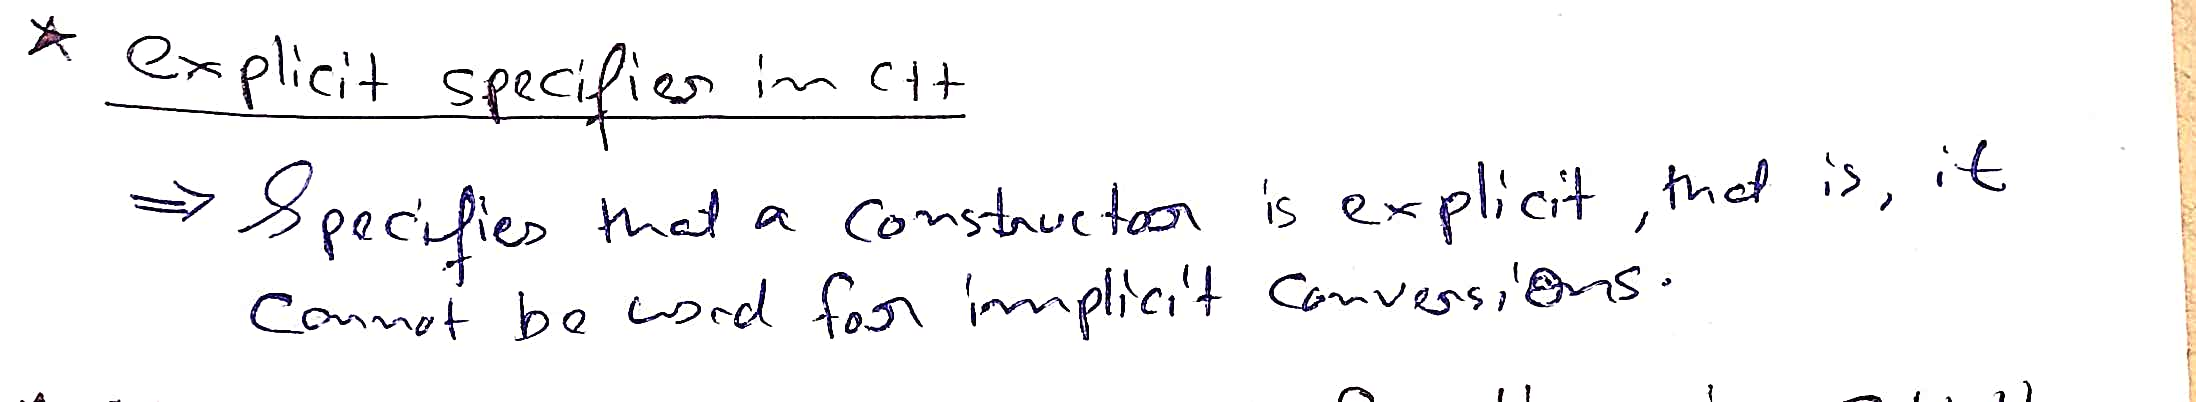 * explicit specifier in C++
⇒ Specifies that a constructor is explicit, that is, it
cannot be used for implicit conversions.